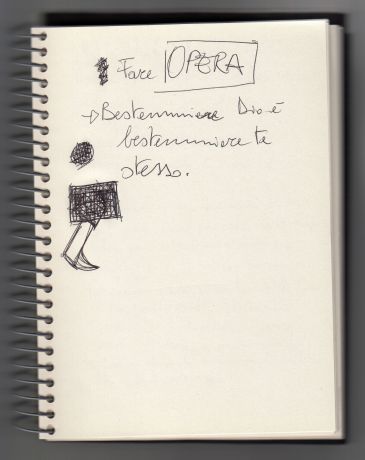 Fare OPERA
→Bestemmiare Dio è
bestemmiare te
stesso.